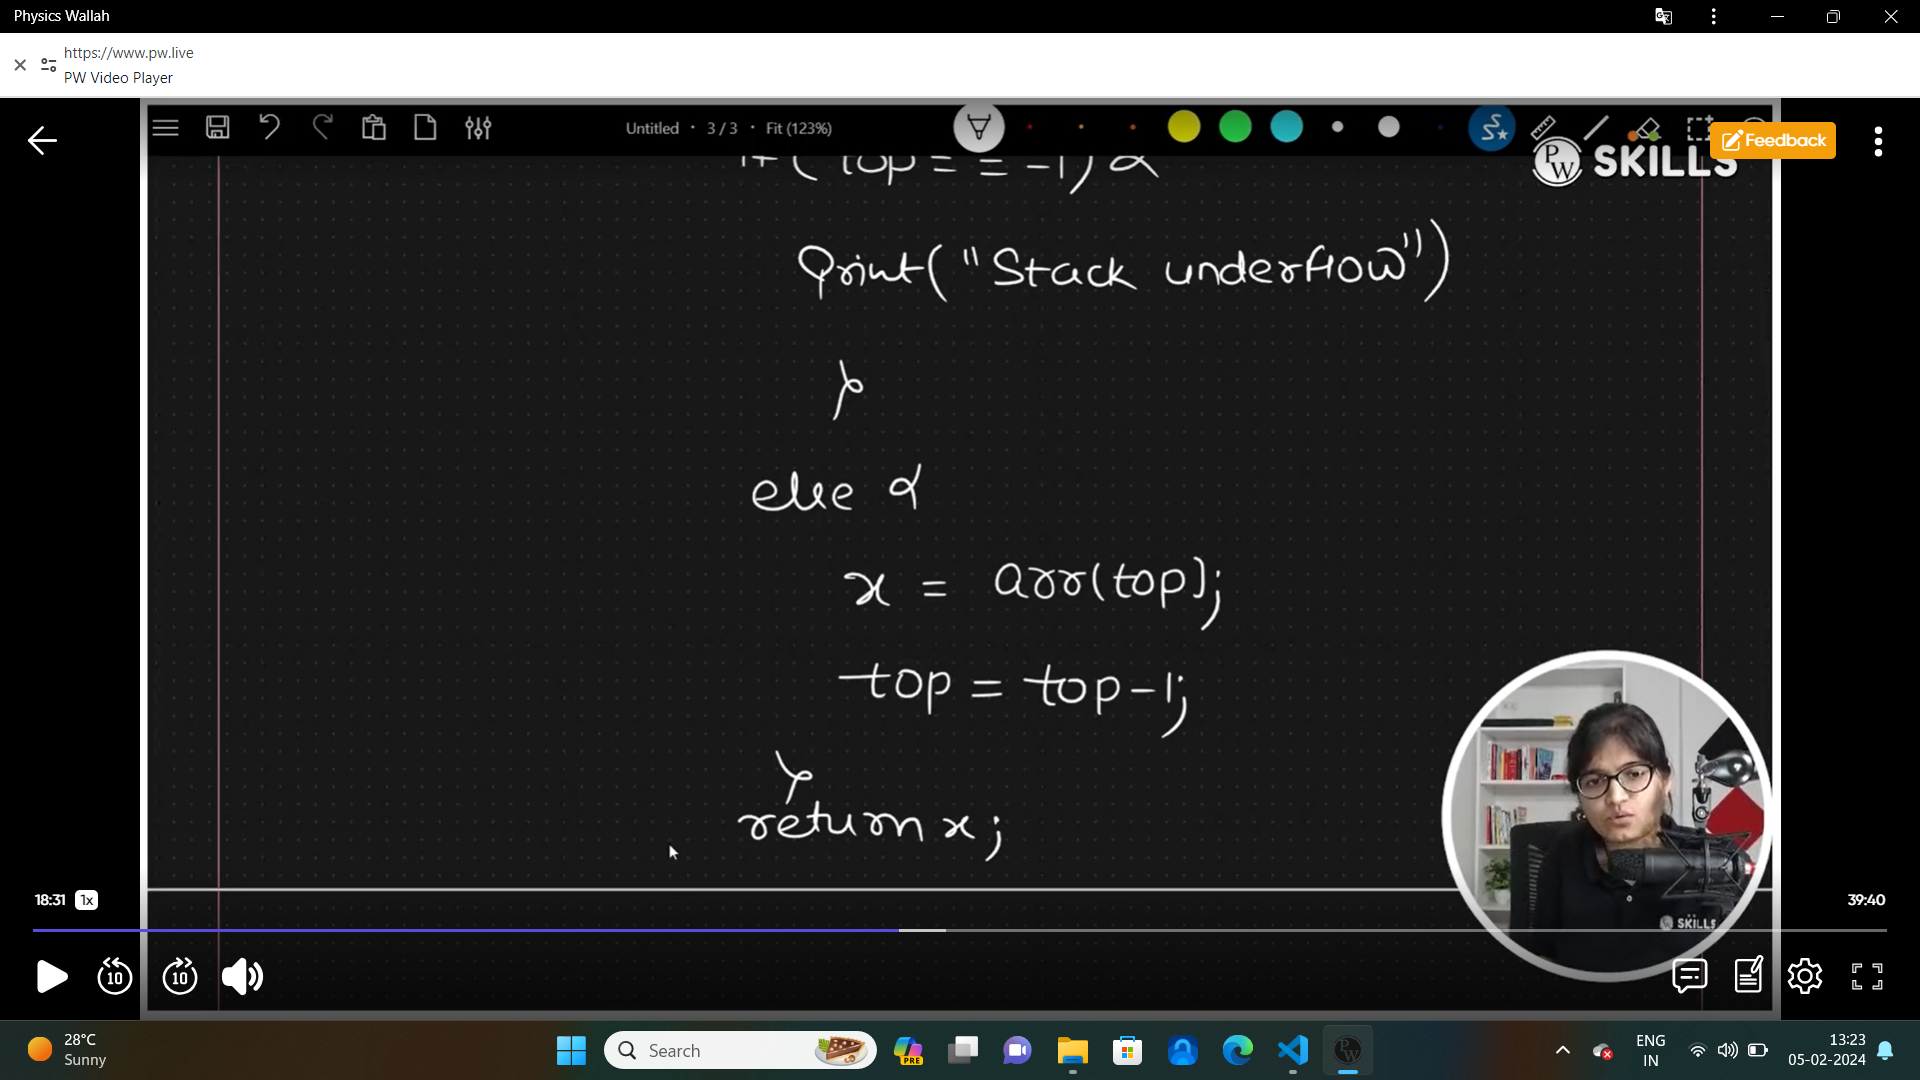 Physics Wallah
https://www.pw.live
PW Video Player
Untitled • 3/3 • Fit (123%)
Feedback
PW SKILLS
if (top = = -1) {
Print("Stack underflow")
}
else {
x = arr(top];
top = top-1;
}
return x;
SKILLS
18:31 1x
39:40
10 10
28°C
Sunny
Search
PRE
ENG
IN
13:23
05-02-2024